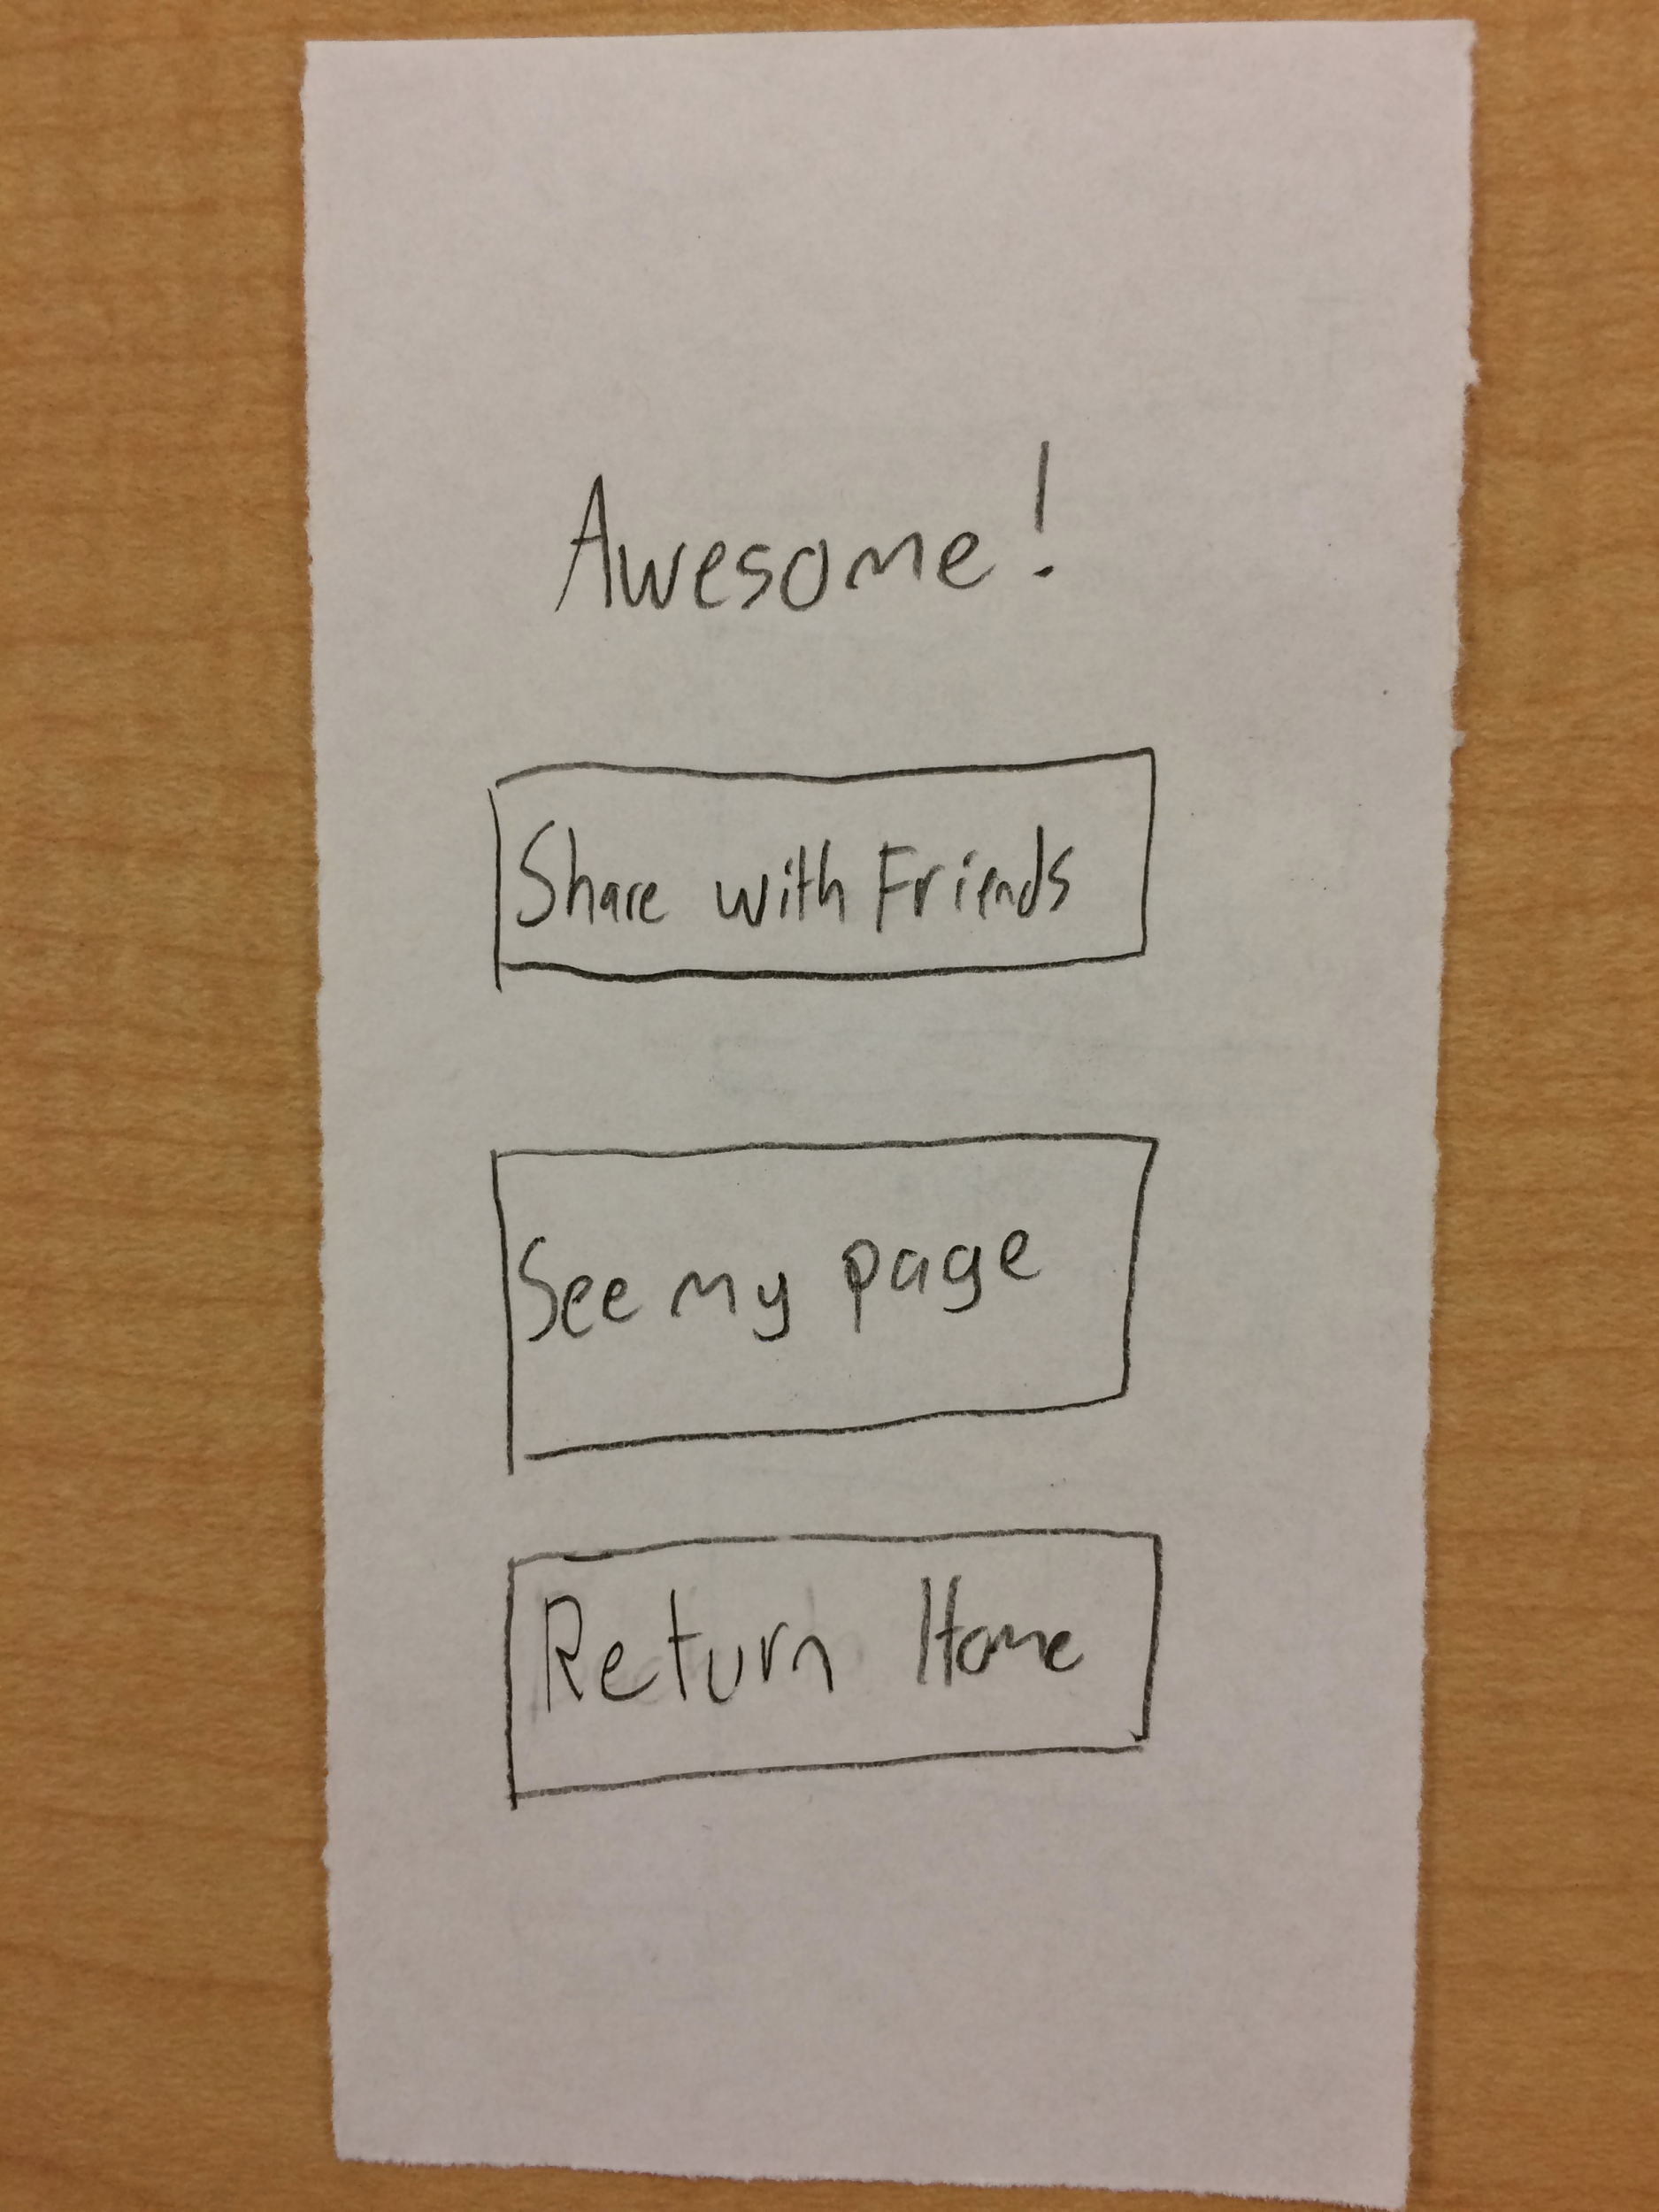 Awesome!
Share with Friends
See my page
Return Home